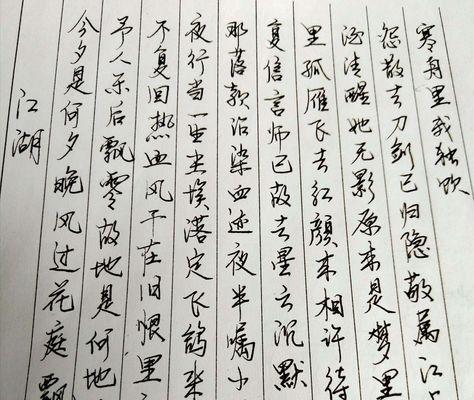 江湖
今夕是何夕晚风过花庭飘
予人乐后飘零故地是何地
不复回热血风干在旧恨里
夜行当一生尘埃落定飞鸽来
那落款沾染血迹夜半嘱小
复信言师已故去星云沉默
里孤雁飞去红颜来相许待
酒清醒她无影原来是梦里
怨散去刀剑已归隐敬属江
寒舟里我独饮